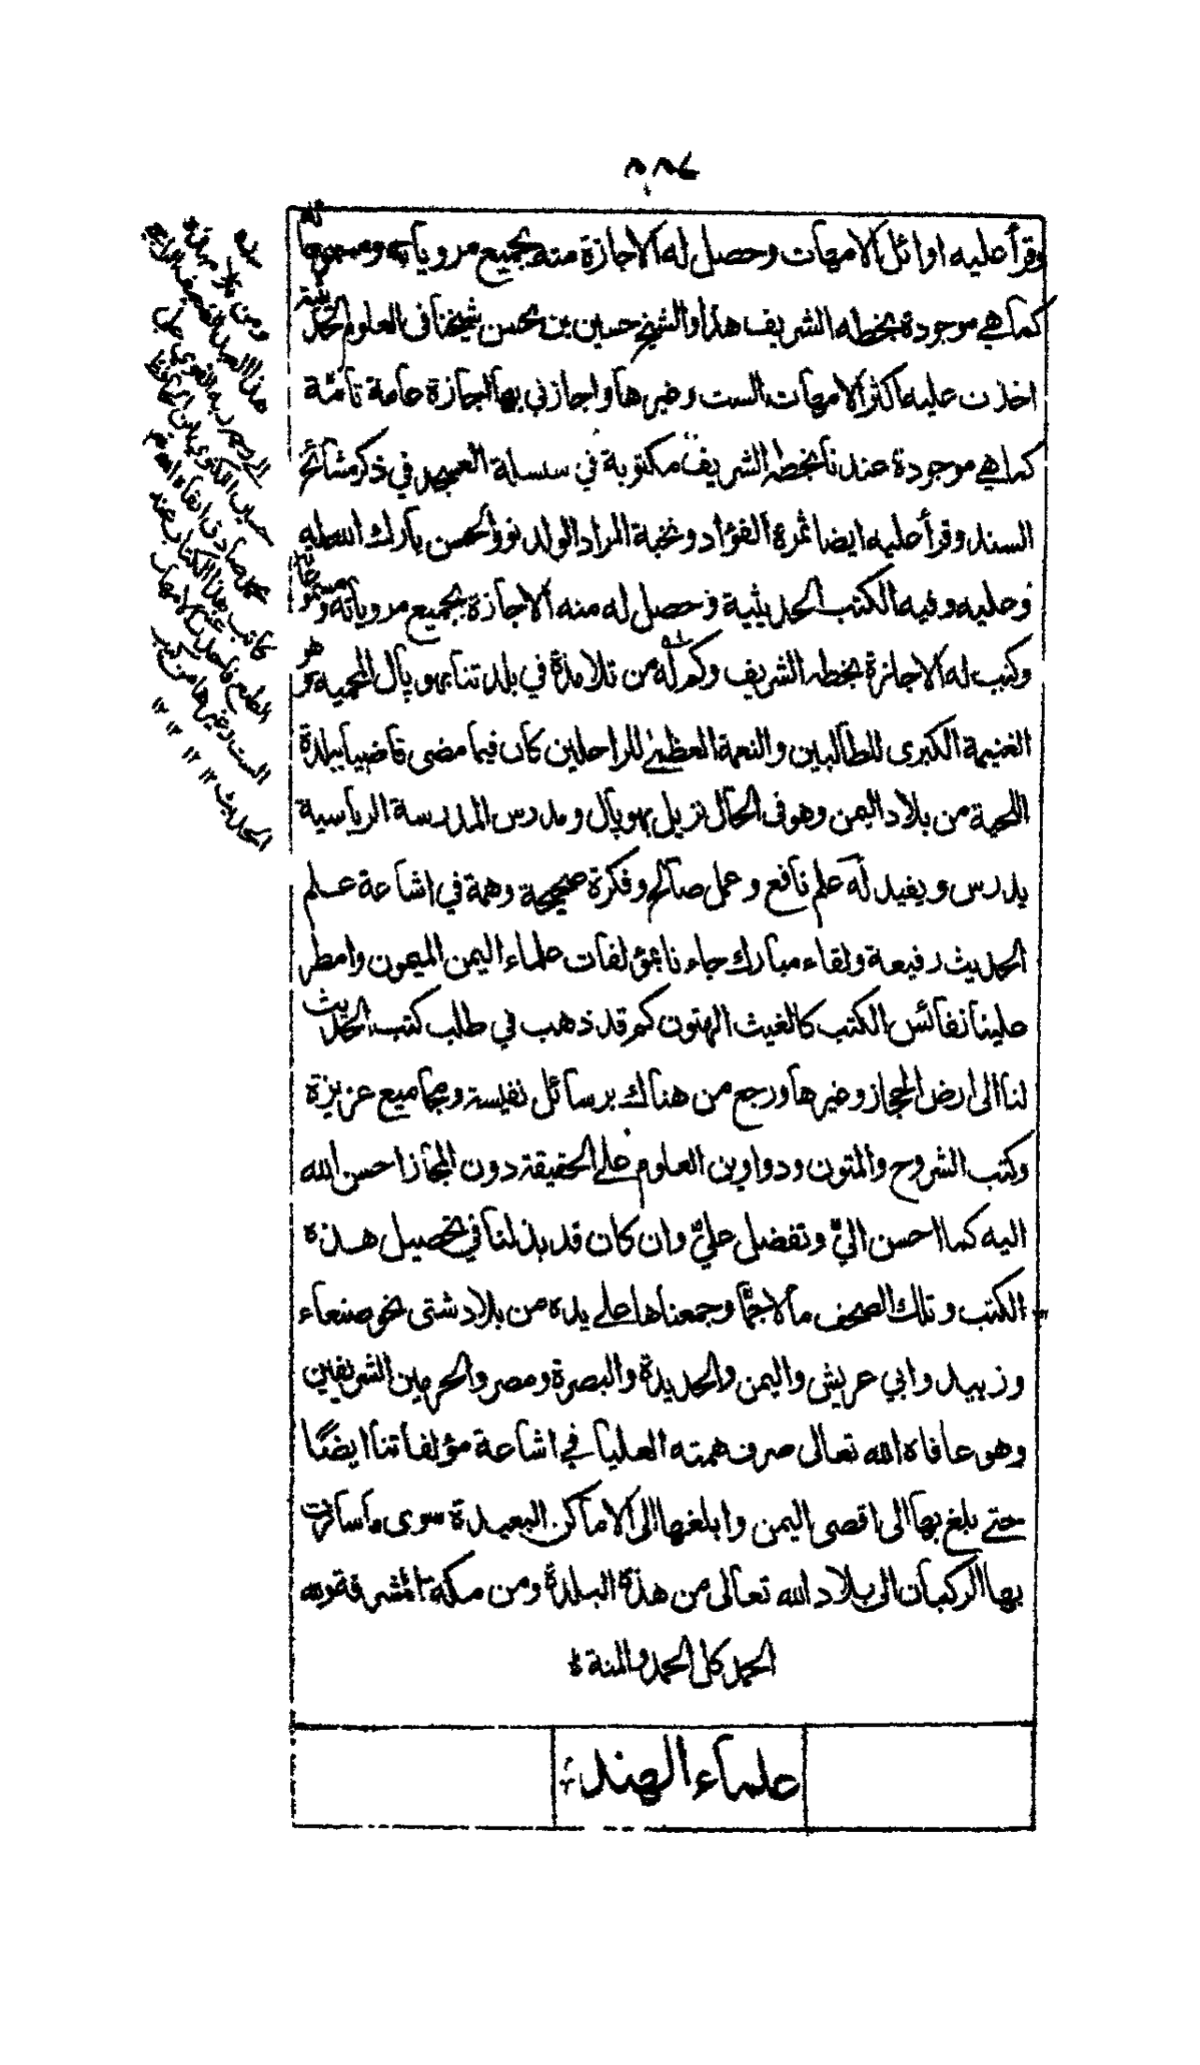 ٨٨٤
وقرأ عليه اوائل الامهات وحصل له الاجازة منه بجميع مروياته ومسموعاته
كما هي موجودة بخطه الشريف هذا والشيخ حسين بن محسن شيخنا في العلوم الحديثية
اخذت عليه اكثر الامهات الست وغيرها واجازني بها اجازة عامة تامّة
كما هي موجودة عندنا بخطه الشريف مكتوبة في سلسلة العسجد في ذكر مشائخ
السند وقرأ عليه ايضا ثمرة الفؤاد ونخبة المراد الولد نور الحسن بارك الله له
وعليه وفيه الكتب الحديثية وحصل له منه الاجازة بجميع مروياته ومسموعاته
وكتب له الاجازة بخطه الشريف وكم له من تلامذة في بلدتنا بهوپال المحمية هو
الغنيمة الكبرى للطالبين والنعمة العظمى للراحلين كان فيما مضى قاضيا ببلدة
اللحية من بلاد اليمن وهو في الحال نزيل بهوپال ومدرس المدرسة الرياسية
يدرس ويفيد له علم نافع وعمل صالح وفكرة صحيحة وهمة في اشاعة علم
الحديث رفيعة ولقاء مبارك جاءنا بمؤلفات علماء اليمن الميمون وامطر
علينا نفائس الكتب كالغيث الهتون كم قد ذهب في طلب كتب الحديث
لنا الى ارض الحجاز وغيرها ورجع من هناك برسائل نفيسة ومجاميع عزيزة
وكتب الشروح والمتون ودواوين العلوم على الحقيقة دون المجاز احسن الله
اليه كما احسن اليّ وتفضل عليّ وان كان قد بذلنا في تحصيل هذه
الكتب وتلك الصحف مالا جمّا وجمعناها على يده من بلاد شتى نحو صنعاء
وزبيد وابي عريش واليمن والحديدة والبصرة ومصر والحرمين الشريفين
وهو عافاه الله تعالى صرف همته العليا في اشاعة مؤلفاتنا ايضًا
حتى بلغ بها الى اقصى اليمن وابلغها الى الاماكن البعيدة سوى ما سافرت
بها الركبان الى بلاد الله تعالى من هذه البلدة ومن مكة المشرفة ولله
الحمد كل الحمد والمنة
علماء الهند
ومن تلامذته
هذا العبد الضعيف
الى رحمة ربه القوي
كاتب هذا الكتاب
الست وغيرها من كتب
الحديث ١٢ ١٢ ١٢ ١٢